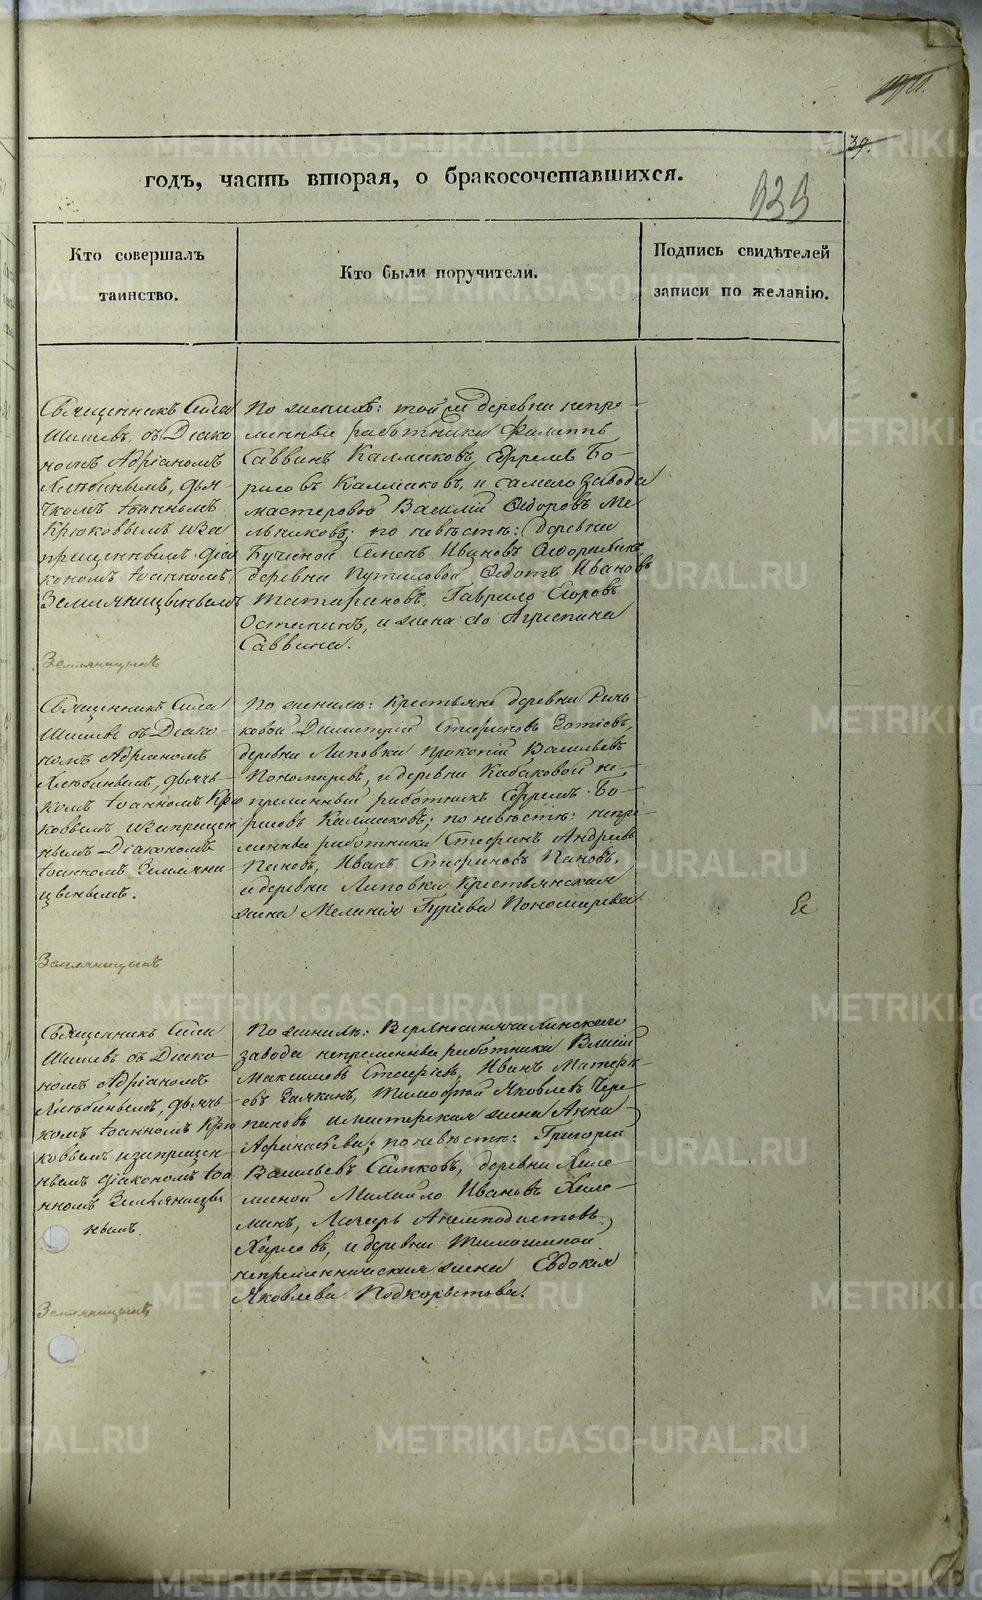 39.
годъ, часть вторая, о бракосочетавшихся.
939
Кто совершалъ
таинство.
Кто были поручители.
Подпись свидѣтелей
записи по желанію.
Священникъ Сила
Шишевъ съ Діако
номъ Адріаномъ
Люблинымъ, дья-
чкомъ Іоанномъ
Крюковымъ и за
прещеннымъ діа
кономъ Іоанномъ
Земляницынымъ
Земляницынъ
По женихѣ: той же деревни непре-
менные работники Филатъ
Саввинъ Калмаковъ, Ефремъ Бо-
рисовъ Калмаковъ, и самаго завода
мастеровой Василій Ѳедоровъ Ме
льниковъ; по невѣстѣ: деревни
Бучиной Семенъ Ивановъ
деревни Путиловой, Ѳедотъ Ивановъ
Татариновъ, Гаврило Егоровъ
Останинъ, и жена его Агрипина
Саввина.
Священникъ Сила
Шишевъ съ Діако-
номъ Адріаномъ
Люблинымъ, дьячь-
комъ Іоанномъ Крю
ковымъ и запрещен
нымъ Діакономъ
Іоанномъ Земляни
цынымъ.
Земляницынъ
По женихѣ: Крестьяне деревни Ричь-
ковой Димитрій Стефановъ Зотѣевъ,
деревни Липовки Прокопій Васильевъ
Пономаревъ, и деревни Кабаковой не-
пременный работникъ Ефремъ Бо-
рисовъ Калмаковъ; по невѣстѣ: непре
менные работники Стефанъ Андреевъ
Пановъ, Иванъ Стефановъ Пановъ,
и деревни Липовки Крестьянская
жена Меланія Гурьева Пономарева.
Священникъ Сила
Шишевъ съ Діако-
номъ Адріаномъ
Люблинымъ, дьячь-
комъ Іоанномъ Крю
ковымъ и запрещен
нымъ діакономъ Іоа
нномъ Земляницы
нымъ.
Земляницынъ
По женихѣ: Верхнесинячихинскаго
завода непременные работники
Максимовъ Иванъ
Тимофѣй Яковлевъ Чере-
пановъ и мастерская жена Анна
Афанасьева; по невѣстѣ: Григорій
Васильевъ деревни Хале-
миной Михайло Ивановъ Хале-
минъ, Лазарь Анемподистовъ
Харловъ, и деревни Тимошиной
непременническая жена Евдокія
Яковлева Подкорытова.
METRIKI.GASO-URAL.RU